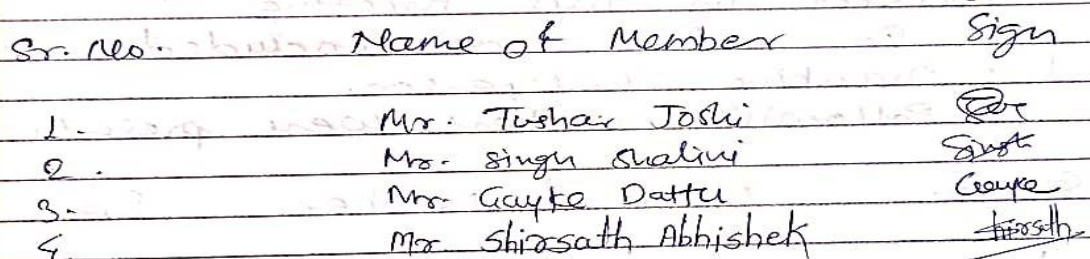 Sr. No. Name of Member Sign
1. Mr. Tushar Joshi
2. Mr. Singh Shalini Singh
3. Mr. Gayke Dattu Gayke
4 Mr Shirsath Abhishek Shirsath